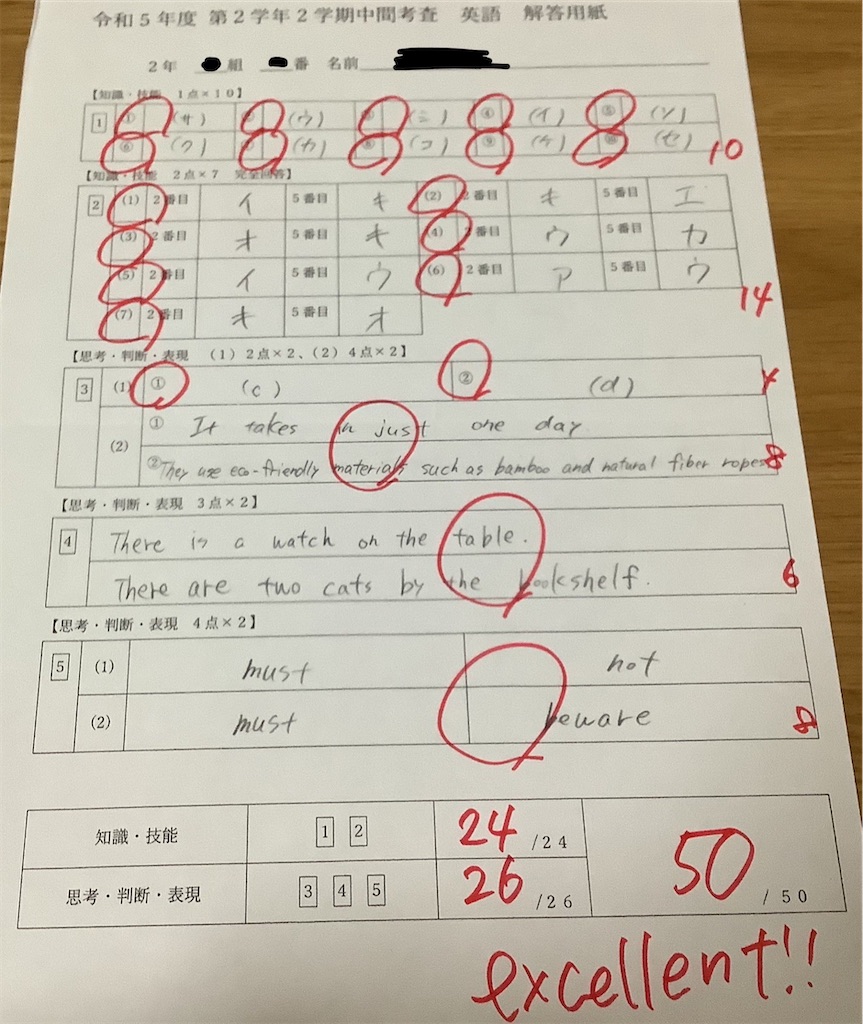 令和５年度 第２学年２学期中間考査 英語 解答用紙
２年 組 番 名前
【知識・技能 １点×１０】
1 ① (サ) (ウ) (ニ) ④ (イ) ⑤ (ソ)
⑥ (ク) (カ) ⑧ (コ) ⑨ (ケ) (セ) 10
【知識・技能 ２点×７ 完全回答】
2 (1) 2番目 イ 5番目 キ (2) 2番目 キ 5番目 エ
(3) 2番目 オ 5番目 キ (4) 2番目 ウ 5番目 カ
(5) 2番目 イ 5番目 ウ (6) 2番目 ア 5番目 ウ
(7) 2番目 キ 5番目 オ 14
【思考・判断・表現 （１）２点×２、（２）４点×２】
3 (1) ① (c) ② (d) 4
(2) ① It takes in just one day
② They use eco-friendly materials such as bamboo and natural fiber ropes 8
【思考・判断・表現 ３点×２】
4 There is a watch on the table.
There are two cats by the bookshelf. 6
【思考・判断・表現 ４点×２】
5 (1) must not
(2) must beware 8
知識・技能 1 2 24 /24
思考・判断・表現 3 4 5 26 /26
50 /50
excellent!!